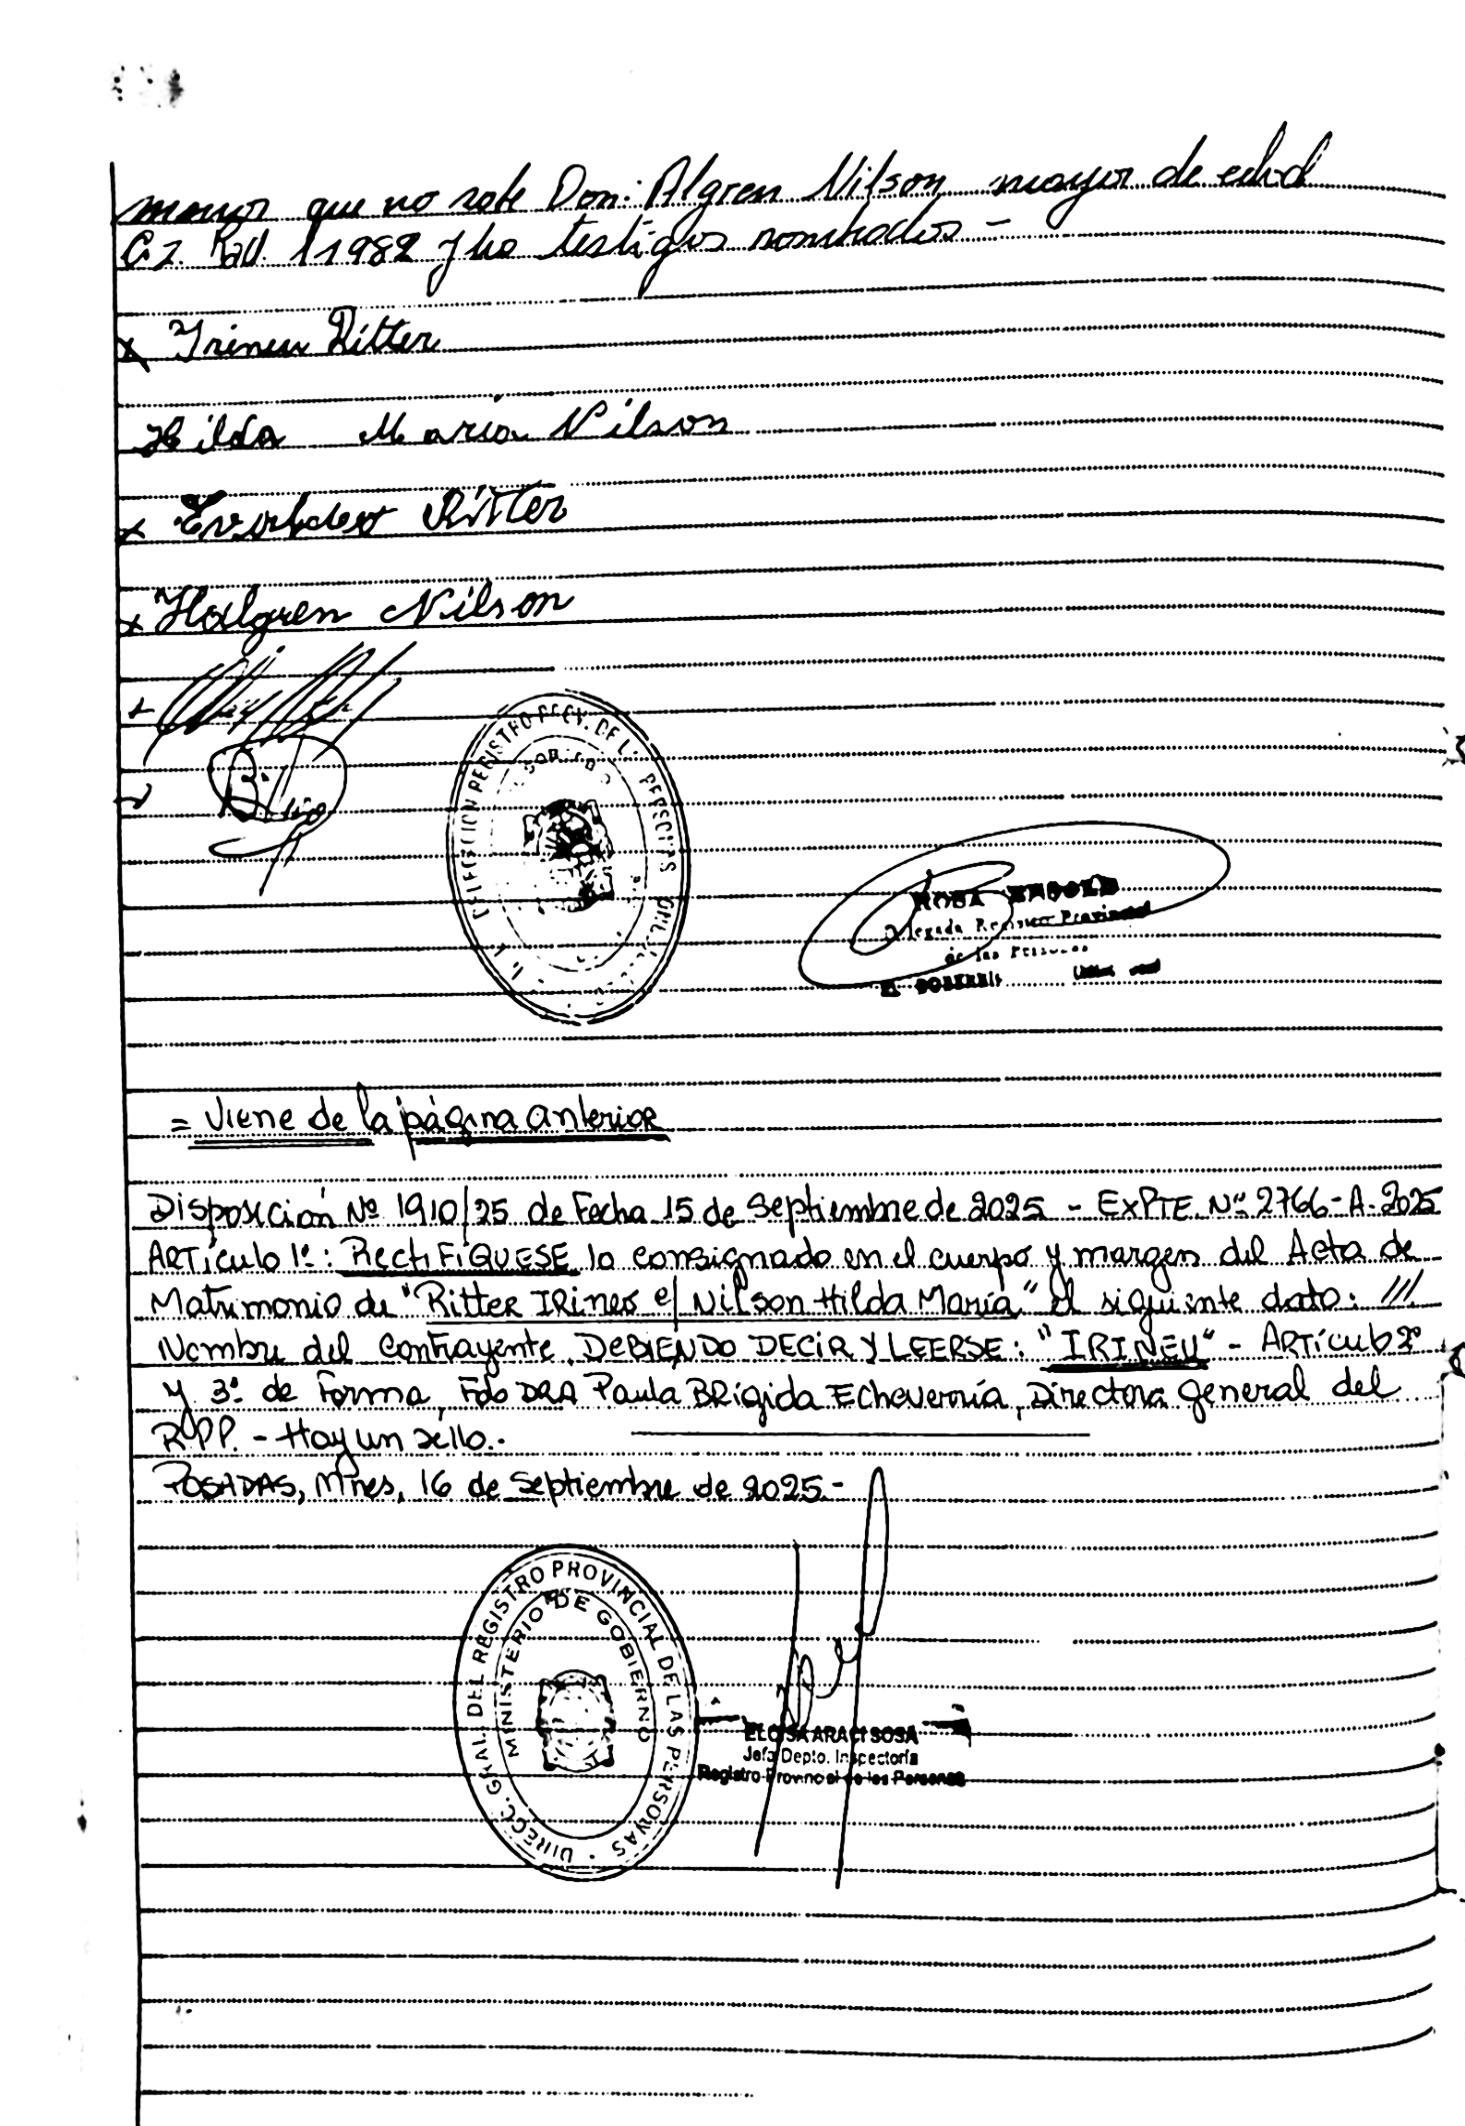 que no sabe Don: Algren Nilson mayor de edad
C.I. 11982 y los testigos nombrados -
x Irineu Ritter
Hilda María Nilson
x Ritter
x Halgren Nilson
REGISTRO PROV. DE L PERSONAS
ROSA
Delegada Registro Provincial
de las Personas
EL SOBERBIO
= Viene de la página anterior
Disposición Nº 1910/25 de Fecha 15 de Septiembre de 2025 - EXPTE. Nº 2766-A-2025
ARTículo 1º: RectiFÍQUESE lo consignado en el cuerpo y margen del Acta de
Matrimonio de "Ritter IRineo c/ Nilson Hilda María" el siguiente dato: ///
Nombre del contrayente DEBIENDO DECIR Y LEERSE: "IRINEU" - ARTículo 2º
y 3º de Forma, Fdo DRA Paula BRigida Echeverría, Directora general del
R.P.P. - Hay un sello.-
POSADAS, Mnes, 16 de Septiembre de 2025.-
DIRECC. GRAL. DEL REGISTRO PROVINCIAL DE LAS PERSONAS
MINISTERIO DE GOBIERNO
ELOISA ARACI SOSA
Jefa Depto. Inspectoría
Registro Provincial de las Personas